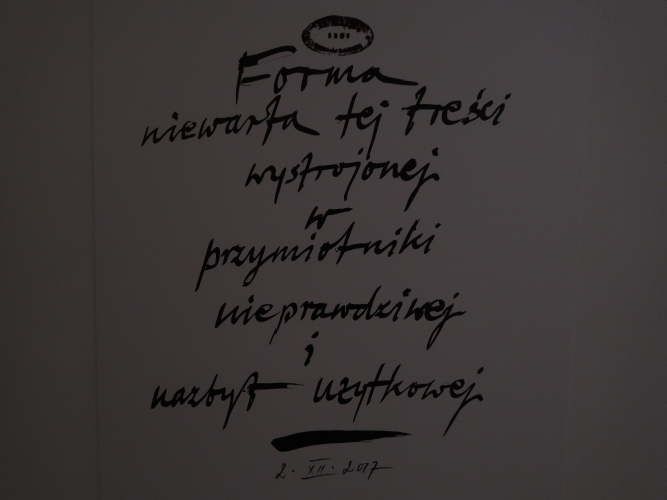 Forma
niewarta tej treści
wystrojonej
w
przymiotniki
nieprawdziwej
i
nazbyt użytkowej
2. XII. 2017